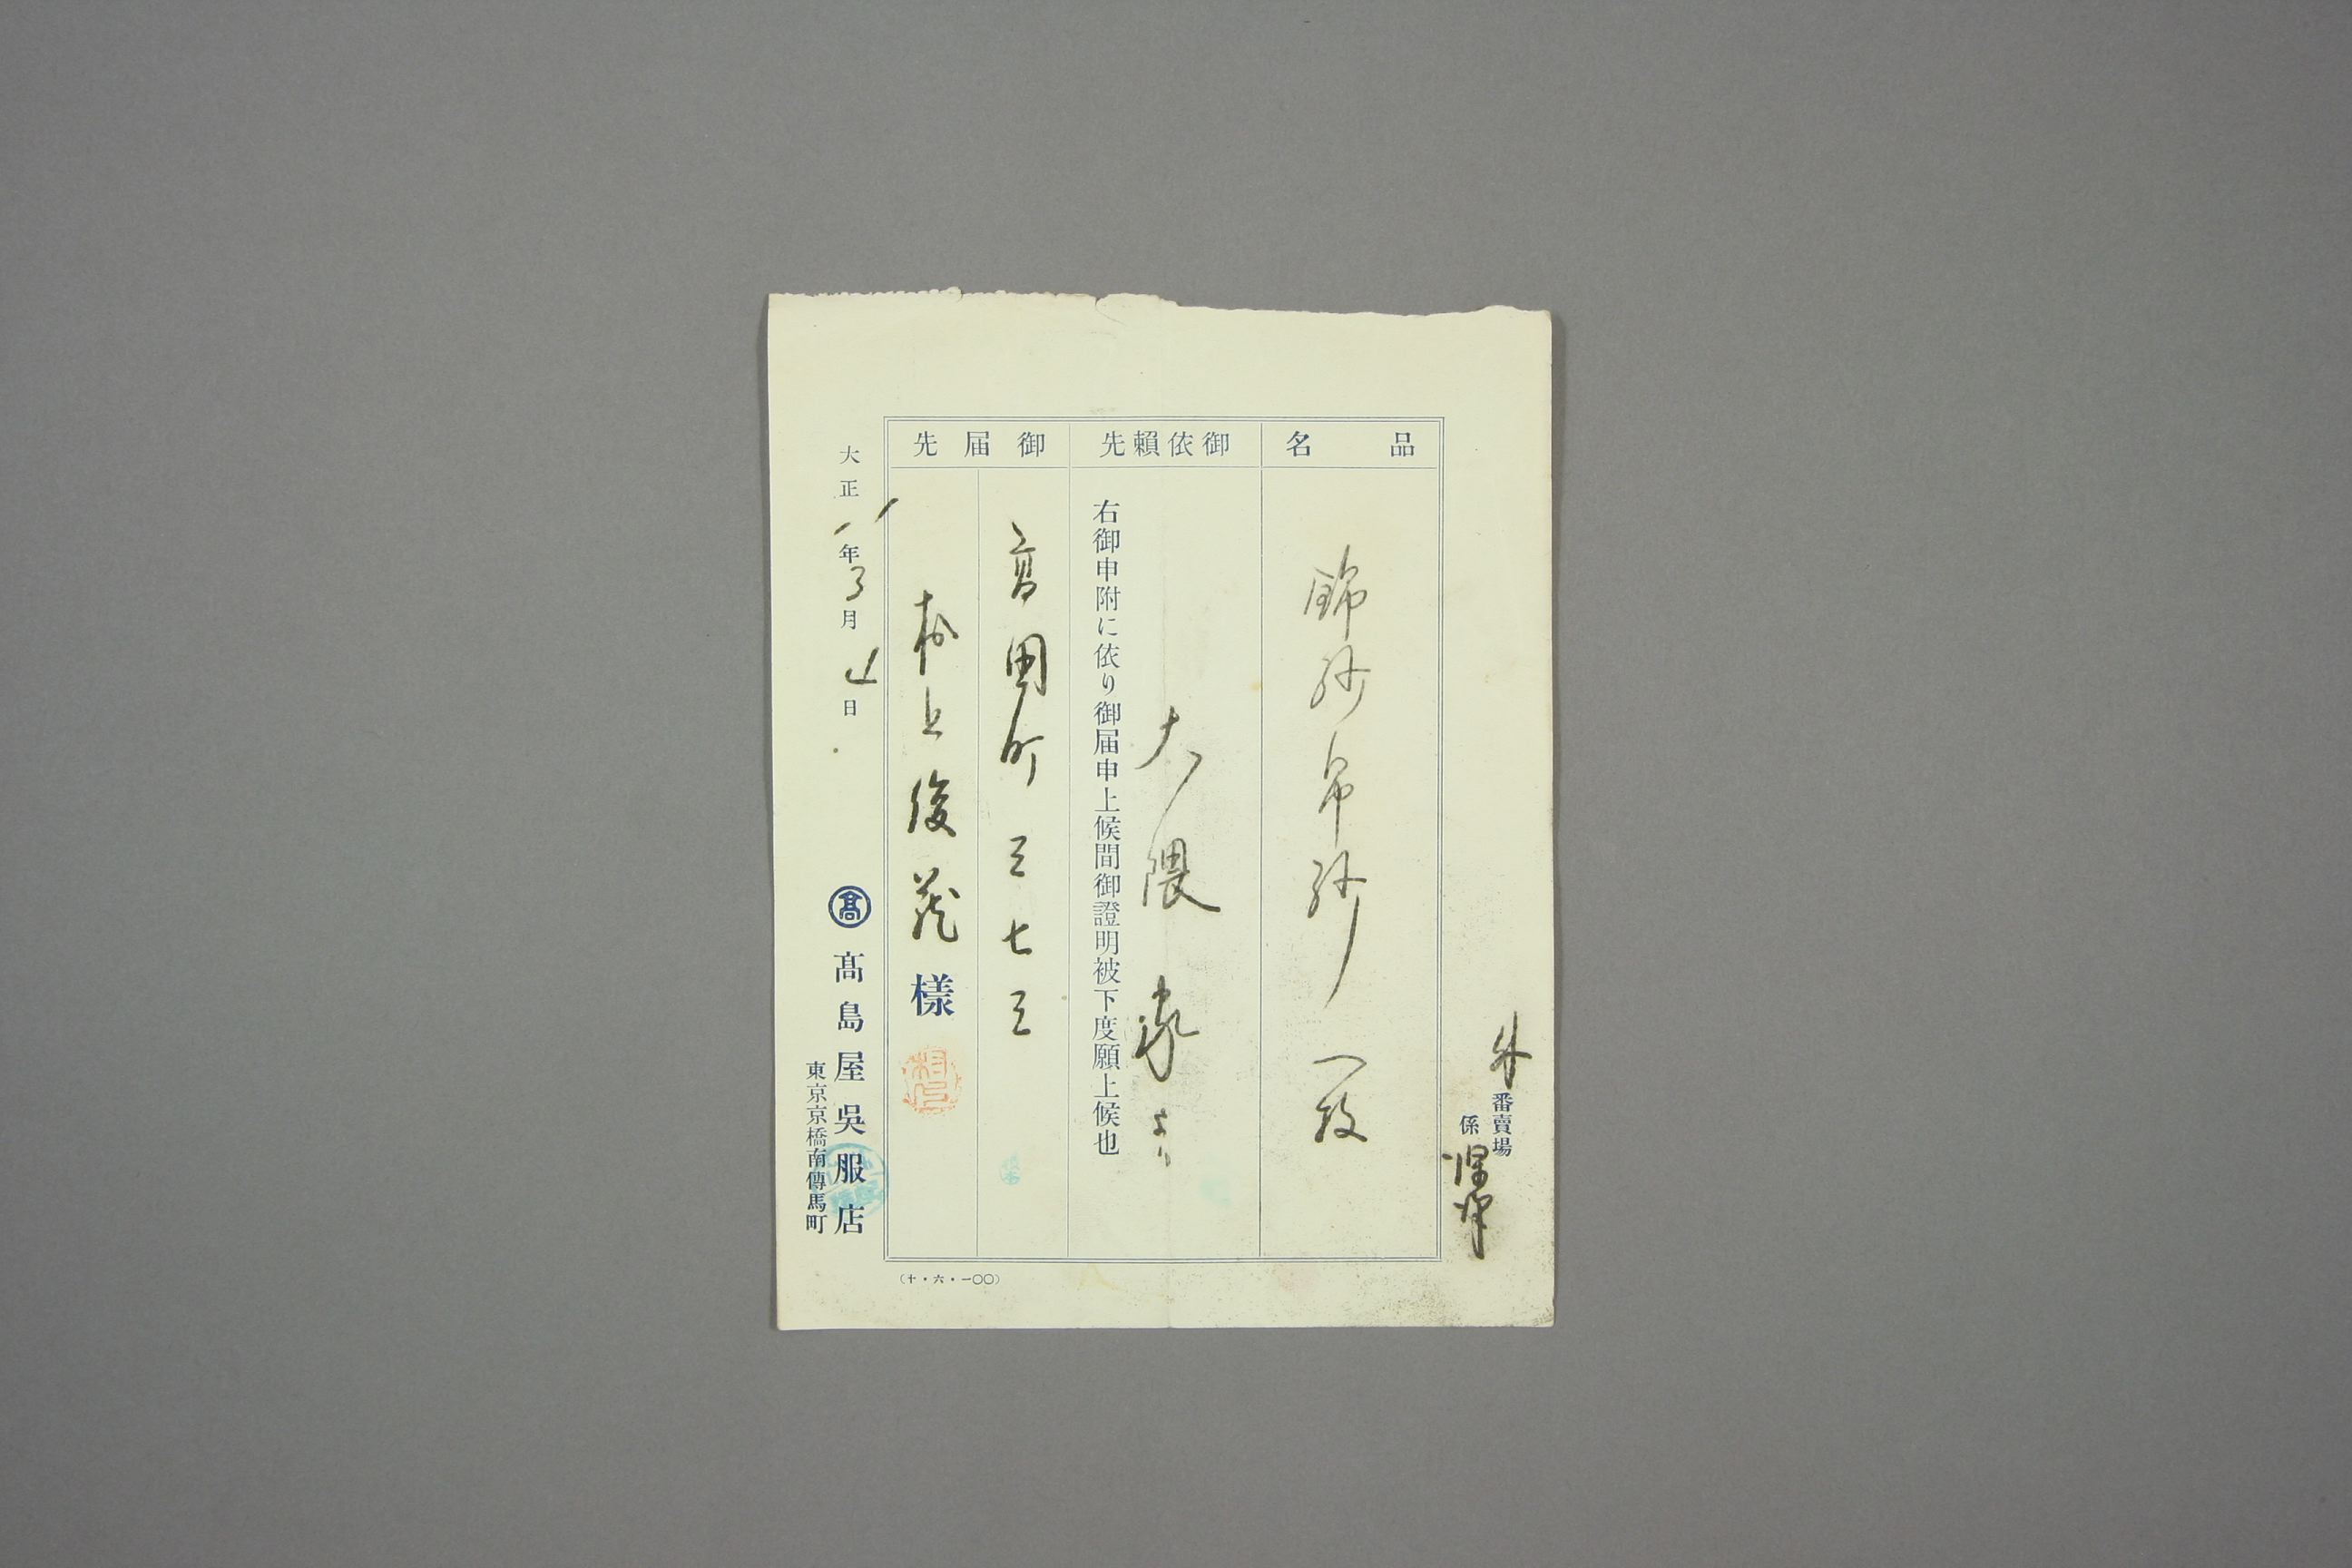 外番賣場
係
品名
錦紗帛紗 一枚
御依賴先
大隈家より
右御申附に依り御届申上候間御證明被下度願上候也
御届先
高田町三七三
村上俊蔵樣
大正十一年3月4日
髙
髙島屋吳服店
東京京橋南傳馬町
(十・六・一〇〇)